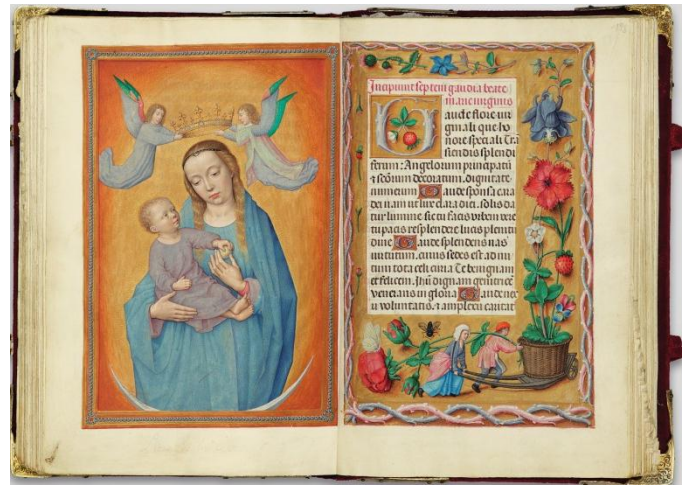 Incipiunt septem gaudia beate
marie virginis
Gaude flore vir
ginali que ho
nore speciali Tra
scendis splendi
ferum: Angelorum principatū
⁊ scōrum decoratum. dignitate
numerum Gaude sponsa cara
dei nam ut lux clara diei. solis da
tur lumine sic tu facis orbem vere
tu pacis resplendere lucis plenitu
dine Gaude splendens vas
virtutum. cuius sedes est ad nu
tum tota celi curia Te benignam
et felicem. Jhū dignam genitricē
venerans in gloria Gaude nexu